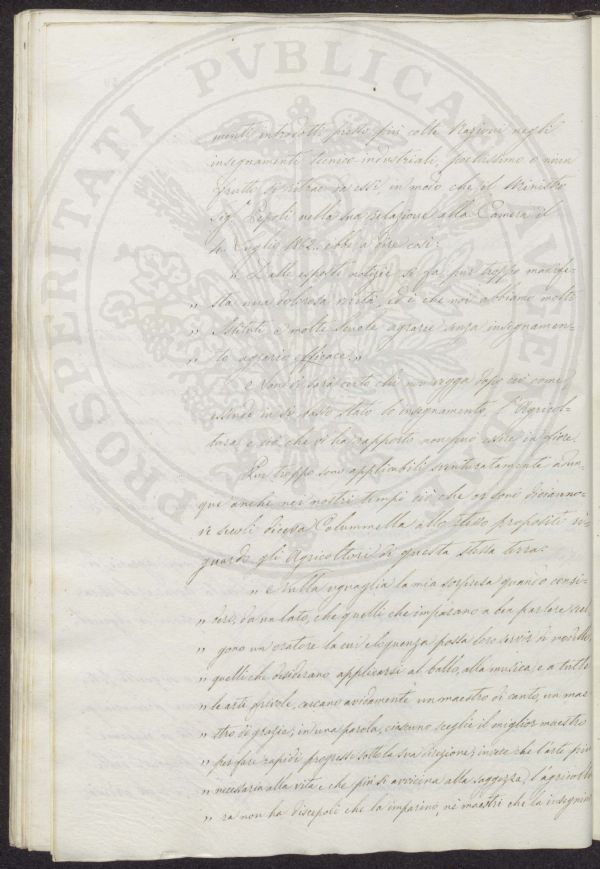 menti introdotti presso più colte Nazioni negli
insegnamenti tecnico industriali, pochissimo o niun
frutto si ritrae da essi, in modo che il Ministro
Sig.r Pepoli nella sua relazione alla Camera il
Luglio 1862. ebbe a dire così:
" Dalle esposte notizie si fa pur troppo manife-
" sta una dolorosa verità, ed è che noi abbiamo molti
" Istituti e molte Scuole agrarie senza insegnamen-
" to agrario efficace. "
e non vi sarà certo chi non vegga dopo ciò come
essendo in sì basso stato lo insegnamento, l'Agricol-
tura, e ciò che vi ha rapporto non può essere in fiore.
Pur troppo sono applicabili sventuratamente adun-
que anche nei nostri tempi ciò che or sono diecianno-
ve secoli diceva Columnella allo stesso proposito ri-
guardo gli Agricoltori di questa stessa terra.
" e nulla uguaglia la mia sorpresa quando consi-
" dero, da un lato, che quelli che imparano a ben parlare scel
" gono un oratore la cui eloquenza possa loro servir di modello,
" quelli che desiderano applicarsi al ballo, alla musica, e a tutte
" le arti frivole, cercano avidamente un maestro di canto, un mae
" stro di grazie; in una parola, ciascuno sceglie il miglior maestro
" per fare rapidi progressi sotto la sua direzione; invece che l'arte più
" necessaria alla vita e che più si avvicina alla saggezza, l'agricoltu
" ra non ha discepoli che la imparino, nè maestri che la insegnino
PROSPERITATI PVBLICAE AVGENDAE